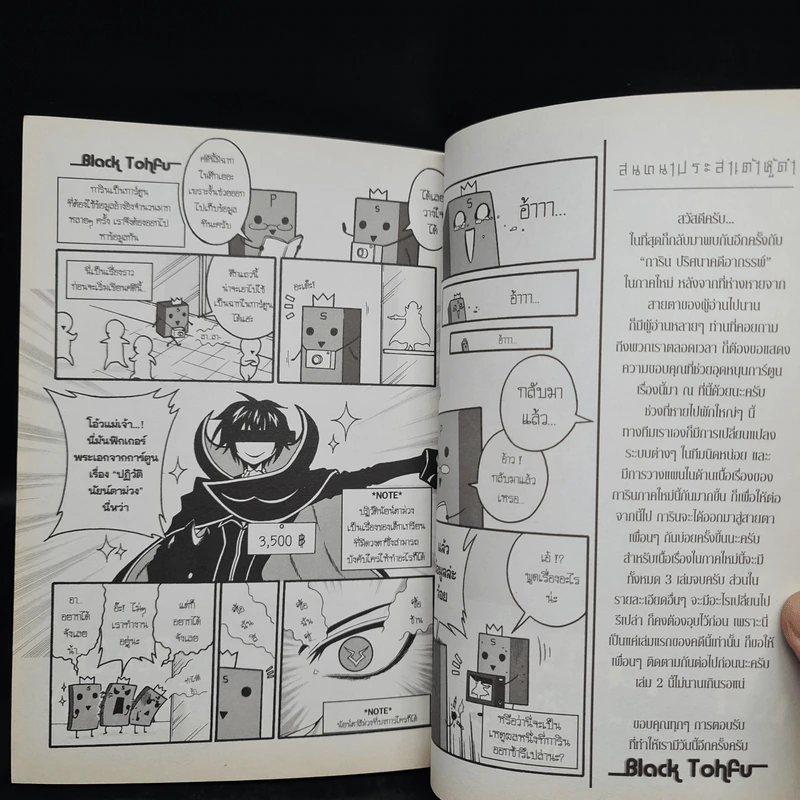 Black Tohfu
การินเป็นการ์ตูน
ที่ต้องใช้ข้อมูลอ้างอิงจำนวนมาก
หลายๆ ครั้ง เราจึงต้องออกไป
หาข้อมูลกัน
คดีนี้มีฉาก
ในตึกเยอะ
เพราะงั้นช่วยออก
ไปเก็บข้อมูล
ทีนะครับ
P
S
ได้เลย
วางใจ
ได้
นี่เป็นเรื่องราว
ก่อนจะเริ่มเขียนคดีนี้
ตึกแถวนี้
น่าจะเอาไปใช้
เป็นฉากในการ์ตูน
ได้แฮะ
โอ้วแม่เจ้า...!
นี่มันฟิกเกอร์
พระเอกจากการ์ตูน
เรื่อง "ปฏิวัติ
นัยน์ตาม่วง"
นี่หว่า
3,500 ฿
*NOTE*
ปฏิวัตินัยน์ตาม่วง
เป็นเรื่องของเด็กนักเรียน
ที่มีดวงตาซึ่งสามารถ
บังคับใครให้ทำอะไรก็ได้
อา...
อยากได้
จังเลย
น้า
อ๊ะ! ไม่ๆ
เราทำงาน
อยู่นะ
แต่ก็
อยากได้
จังเลย
S
*NOTE*
อ้าาา...
S
อ้าาา...
อ้าา...
กลับมา
แล้ว...
อ้าว!
กลับมาแล้ว
เหรอ...
แล้ว
เอ๋ !?
พูดเรื่องอะไร
น่ะ
S
หรือว่านี่จะเป็น
เหตุผลหนึ่งที่การิน
ออกช้ารึเปล่านะ?
สนทนาประสาเต้าหู้ดำ
สวัสดีครับ...
ในที่สุดก็กลับมาพบกันอีกครั้งกับ
"การิน ปริศนาคดีอาถรรพ์"
ในภาคใหม่ หลังจากที่ห่างหายจาก
สายตาของผู้อ่านไปนาน
ก็มีผู้อ่านหลายๆ ท่านที่คอยถาม
ถึงพวกเราตลอดเวลา ก็ต้องขอแสดง
ความขอบคุณที่ช่วยอุดหนุนการ์ตูน
เรื่องนี้มา ณ ที่นี้ด้วยนะครับ
ช่วงที่หายไปพักใหญ่ๆ นี้
ทางทีมเราเองก็มีการเปลี่ยนแปลง
ระบบต่างๆ ในทีมนิดหน่อย และ
มีการวางแผนในด้านเนื้อเรื่องของ
การินภาคใหม่นี้กันมากขึ้น ก็เพื่อให้ต่อ
จากนี้ไป การินจะได้ออกมาสู่สายตา
เพื่อนๆ กันบ่อยครั้งขึ้นนะครับ
สำหรับเนื้อเรื่องในภาคใหม่นี้จะมี
ทั้งหมด 3 เล่มจบครับ ส่วนใน
รายละเอียดอื่นๆ จะมีอะไรเปลี่ยนไป
รึเปล่า ก็คงต้องอุบไว้ก่อน เพราะนี่
เป็นแค่เล่มแรกของคดีนี้เท่านั้น ก็ขอให้
เพื่อนๆ ติดตามกันต่อไปก่อนนะครับ
เล่ม 2 นี้ไม่นานเกินรอแน่
ขอบคุณทุกๆ การตอบรับ
ที่ทำให้เรามีวันนี้อีกครั้งครับ
Black Tohfu